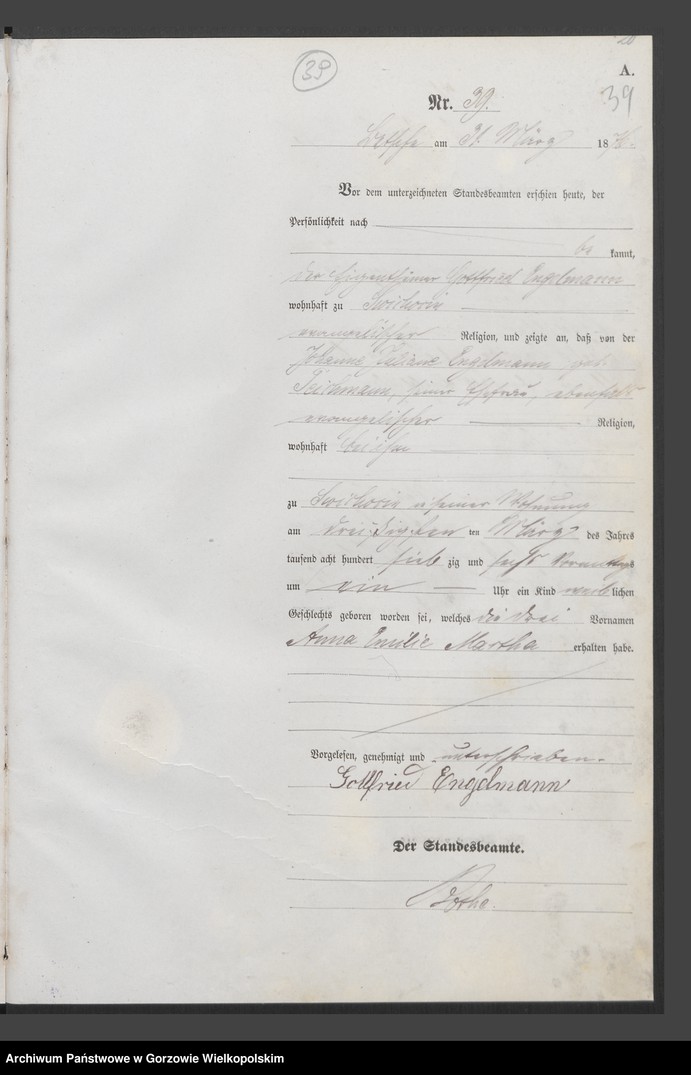 20
39
A.
Nr. 39.
39
am 31. März 1876.
Vor dem unterzeichneten Standesbeamten erschien heute, der
Persönlichkeit nach
be kannt,
der Eigenthümer Gottfried Engelmann
wohnhaft zu
evangelischer Religion, und zeigte an, daß von der
Johanne Juliane Engelmann geb.
Teichmann, seiner Ehefrau, ebenfalls
evangelischer Religion,
wohnhaft bei ihm
zu in seiner Wohnung
am dreißigsten ten März des Jahres
tausend acht hundert sieb zig und sechs Vormittags
um ein Uhr ein Kind weib lichen
Geschlechts geboren worden sei, welches die drei Vornamen
Anna Emilie Martha erhalten habe.
Vorgelesen, genehmigt und unterschrieben.
Gottfried Engelmann
Der Standesbeamte.
Bothe.
Archiwum Państwowe w Gorzowie Wielkopolskim